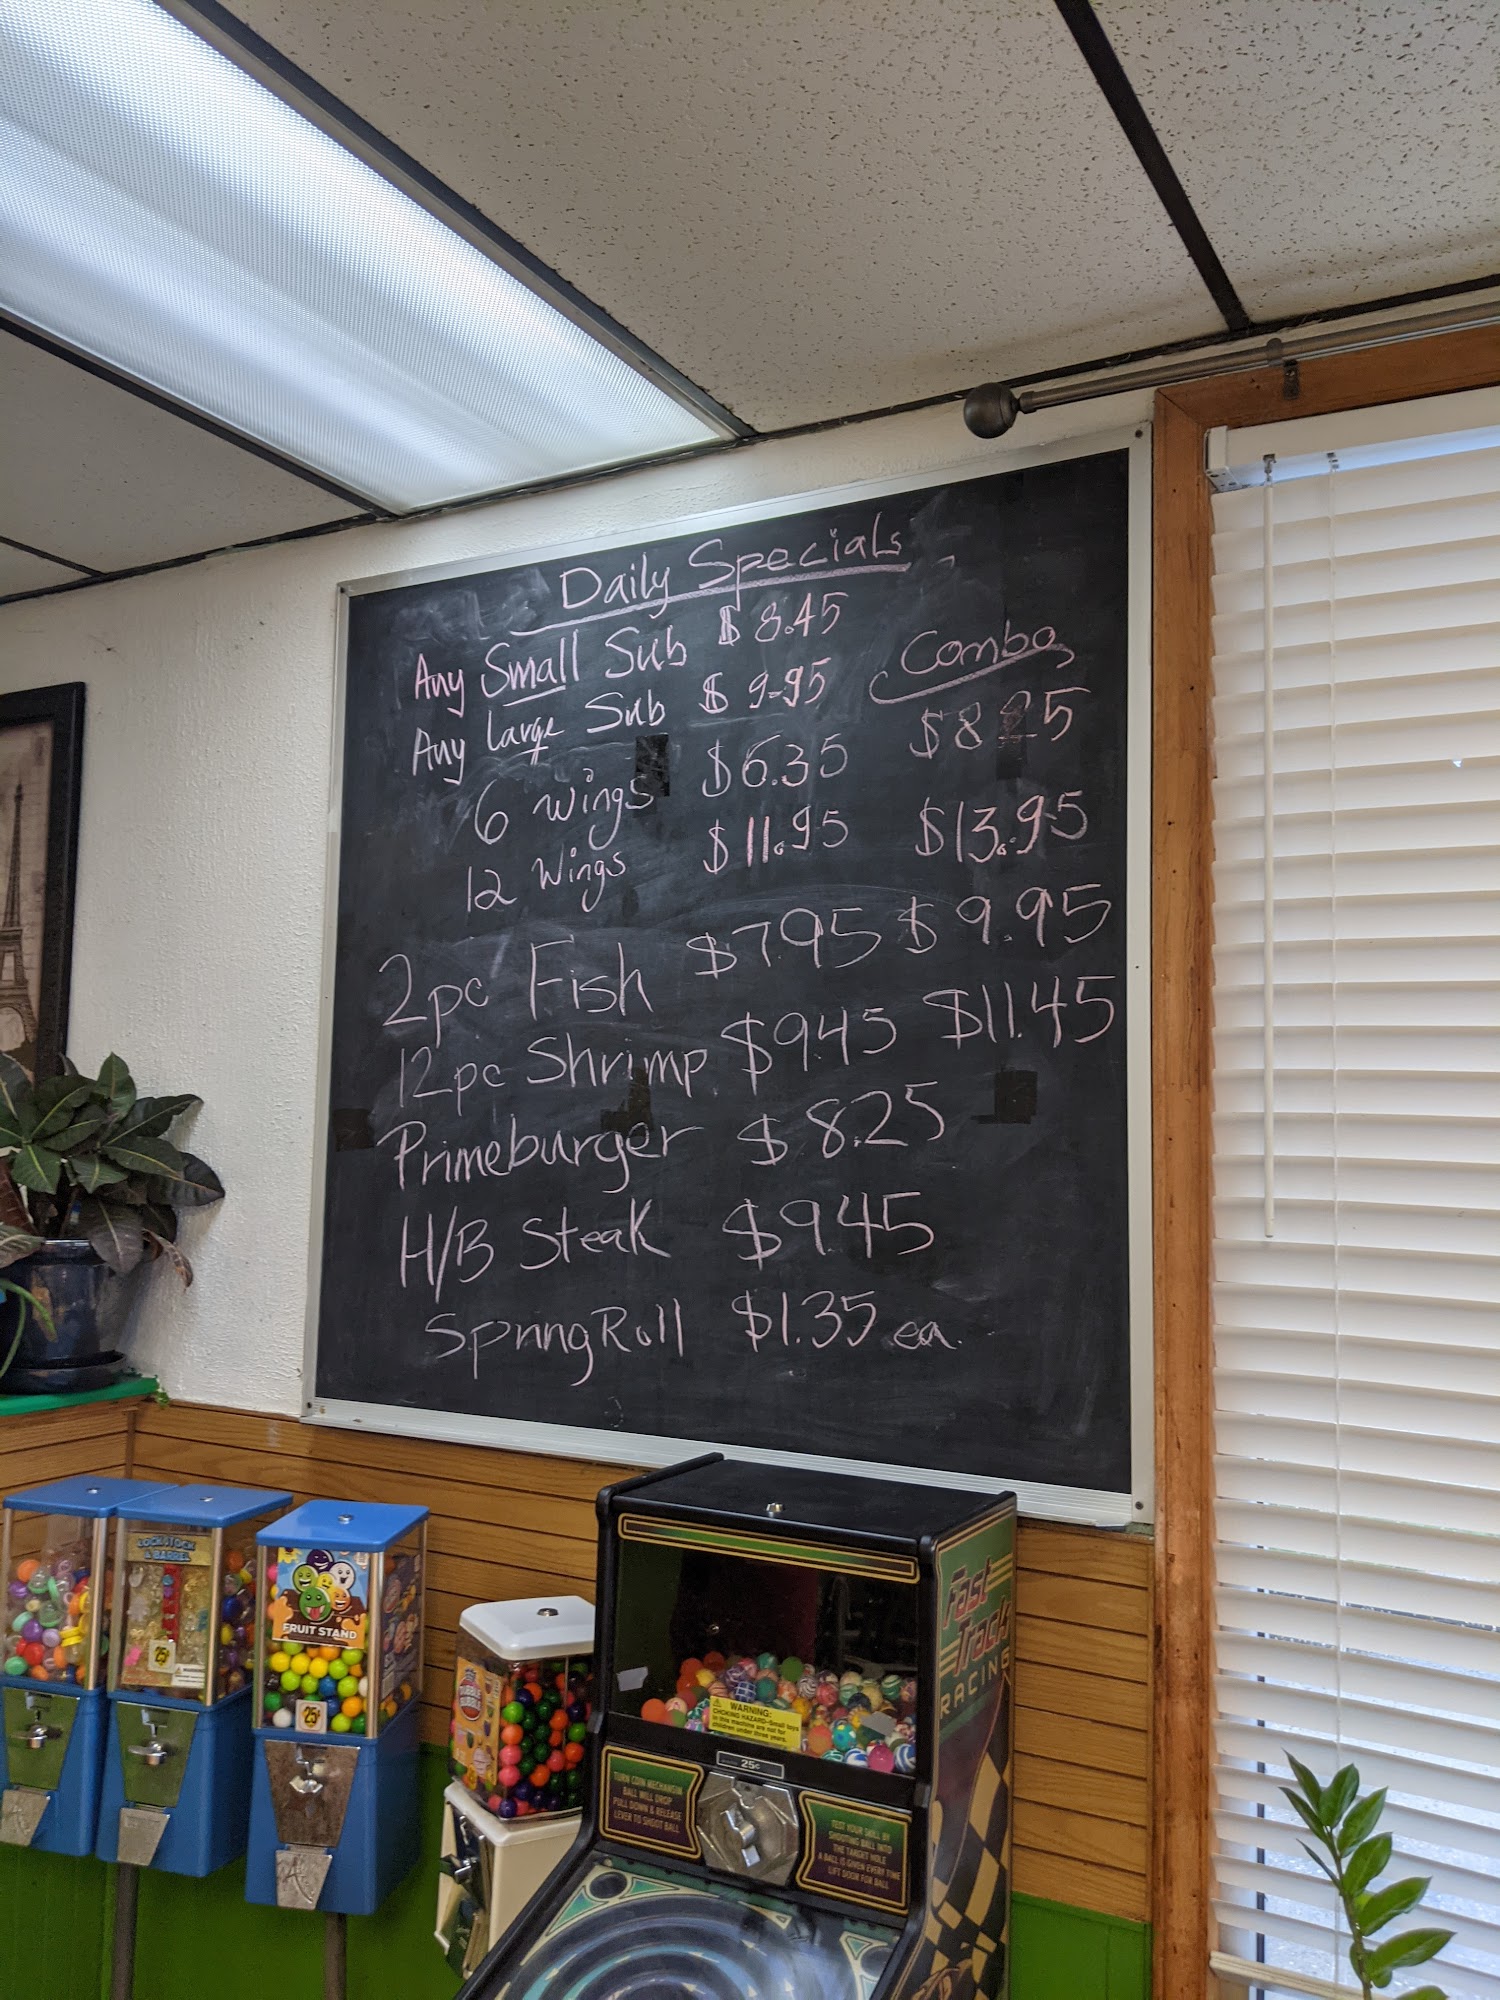 Daily Specials
Any Small Sub $ 8.45
Combo
Any large Sub $ 9.95
6 Wings $6.35 $8.25
12 Wings $11.95 $13.95
2pc Fish $7.95 $9.95
12pc Shrimp $9.45 $11.45
Primeburger $8.25
H/B Steak $9.45
Spring Roll $1.35 ea.
LOCK STOCK
& BARREL
25¢
FRUIT STAND
25¢
WARNING:
CHOKING HAZARD-Small toys
in this machine are not for
children under three years.
25¢
TURN COIN MECHANISM
BALL WILL DROP
PULL DOWN & RELEASE
LEVER TO SHOOT BALL
TEST YOUR SKILL BY
SHOOTING BALL INTO
THE TARGET HOLE
A BALL IS GIVEN EVERY TIME
LIFT DOOR FOR BALL
Fast
Track
RACING